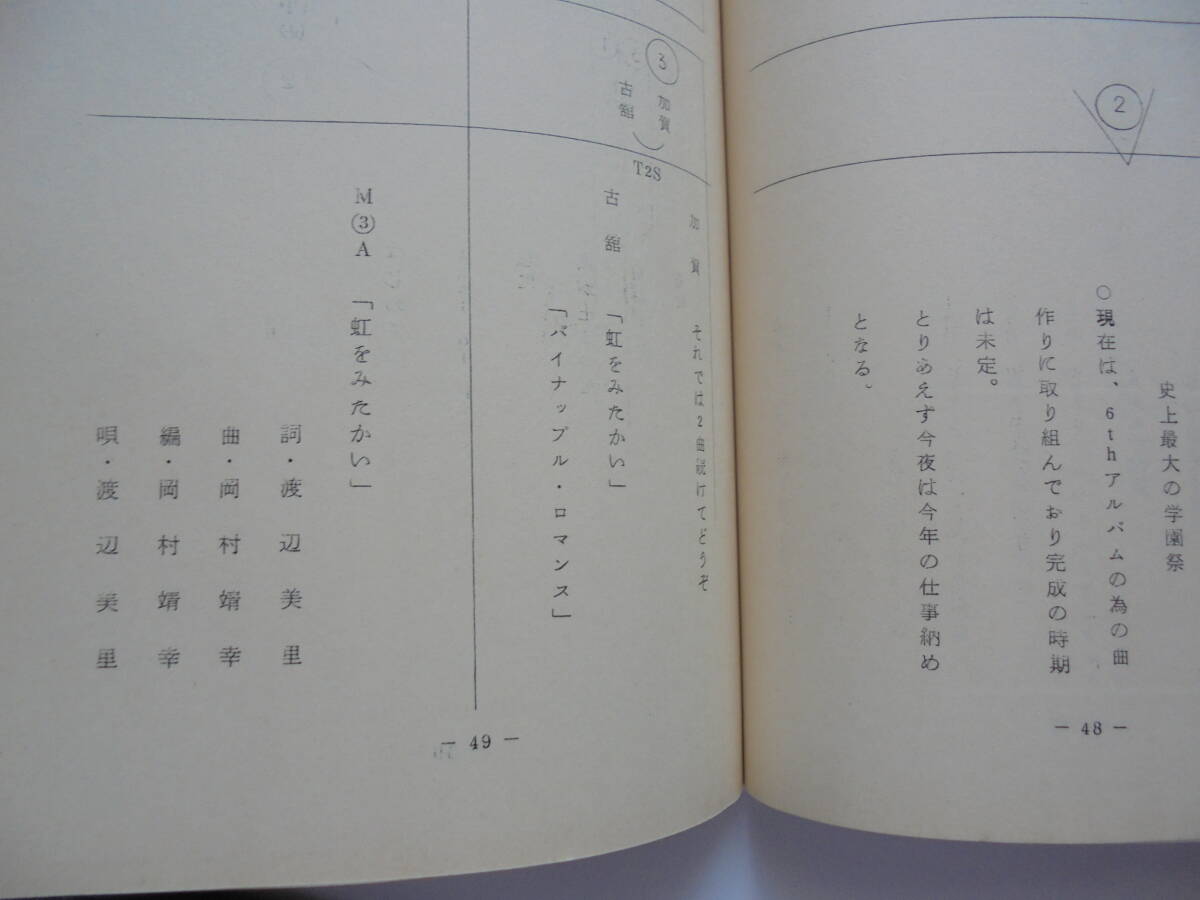 ②
史上最大の学園祭
○現在は、6thアルバムの為の曲
作りに取り組んでおり完成の時期
は未定。
とりあえず今夜は今年の仕事納め
となる。
― 48 ―
③
加賀
古舘
T2S
加賀 それでは2曲続けてどうぞ
古舘 「虹をみたかい」
「パイナップル・ロマンス」
M③A 「虹をみたかい」
詞・渡辺美里
曲・岡村靖幸
編・岡村靖幸
唄・渡辺美里
― 49 ―